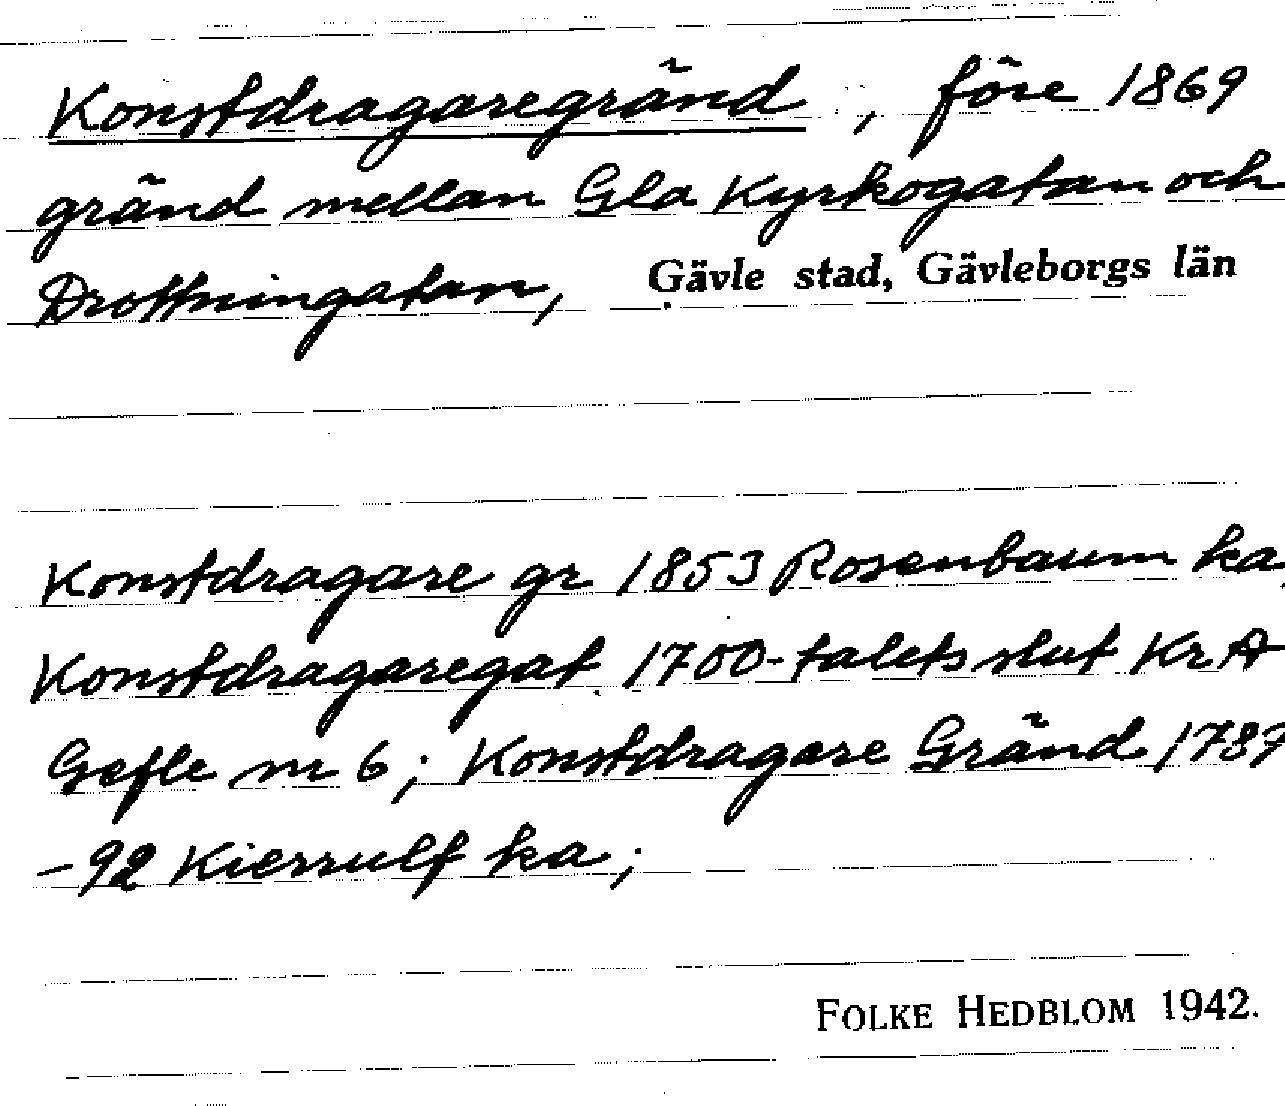 Konstdragaregränd, före 1869
gränd mellan Gla Kyrkogatan och
Drottningatan, Gävle stad, Gävleborgs län
Konstdragare gr 1853 Rosenbaum ka,
Konstdragaregat 1700-talets slut Kr A
Gefle nr 6; Konstdragare Gränd 1787
-92 Kierrulf ka;
FOLKE HEDBLOM 1942.